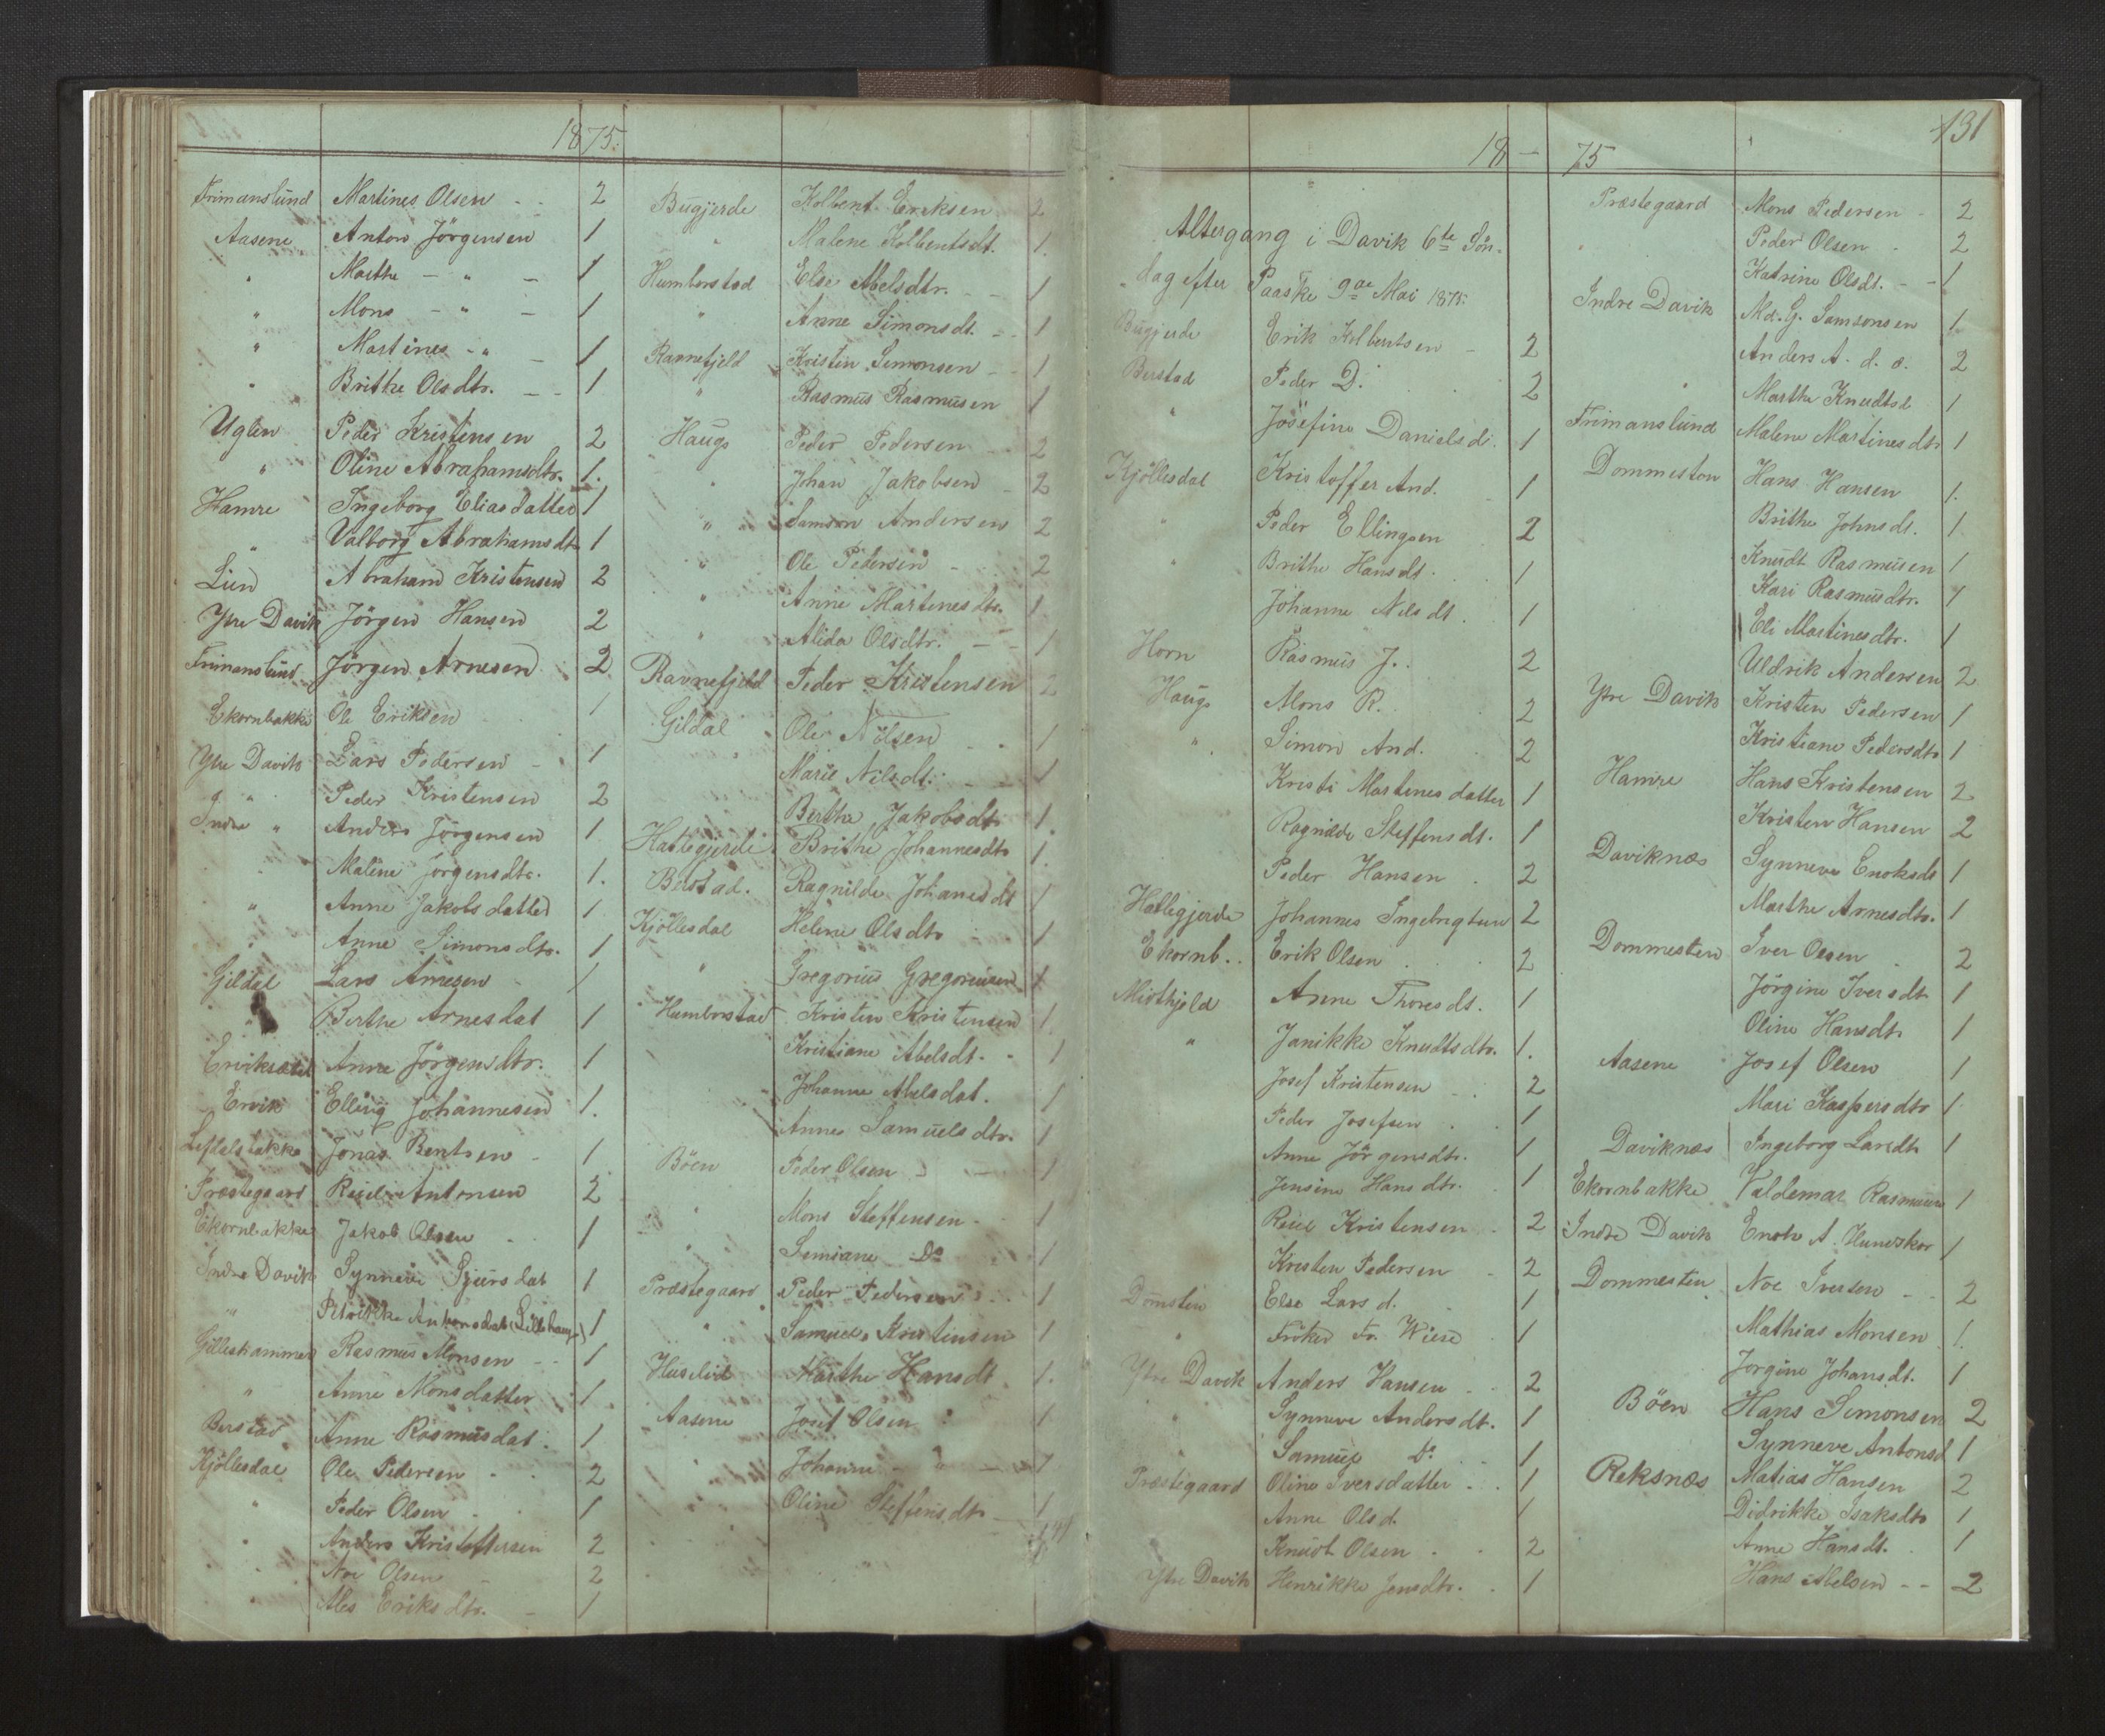 1875.
Frimanslund Martines Olsen - - 2
Aasene Anton Jörgensen 1
" Marthe - " - 1
" Mons - " - 1
" Martines - " - 1
" Brithe Olsdtr. - - 1
Uglen Peder Kristensen 2
" Oline Abrahamsdtr. 1.
Hamre Ingeborg Eliasdatter 1
" Valborg Abrahamsdtr 1
Lien Abraham Kristensen 2
Ytre Davik Jörgen Hansen 2
Frimanslund Jörgen Arnesen 2
Ekornbakke Ole Eriksen 1
Ytre Davik Lars Pedersen - 1
" Peder Kristensen 2
Indre " Anders Jörgensen 1
" Malene Jörgensdtr. 1.
" Anne Jakobsdatter 1
" Anne Simonsdtr. 1
Gildal Lars Arnesen - 1
" Berthe Arnesdat 1
Anne Jörgensdtr. 1
Ervik Elling Johannesen 1.
Jonas Bentsen - 1
Præstegaard Antonsen 2
Ekornbakke Jakob Olsen 1
Indre Davik Synneve Sjursdat 1
" Petrikke Antonsdat (Lillehaug) 1
Gilleskammer Rasmus Monsen - - 1
" Anne Monsdatter 1
Berstad Anne Rasmusdat. 1
Kjöllesdal Ole Pedersen - 2
" Peder Olsen 1
" Anders Kristoffersen 2
" Noe Olsen - 2
" Ales Eriksdtr. - 1
Bugjerde Kolbent Eriksen 2
" Malene Kolbentsdt. 1.
Humborstad Else Abelsdtr. - - 1
" Anne Simonsdt. - - 1
Ravnefjeld Kristen Simonsen - - 1
" Rasmus Rasmusen 1
Haugs Peder Pedersen 2
" Johan Jakobsen - 2
" Samson Andersen 2
" Ole Pedersen - 2
" Anne Martinesdtr. 1
" Alida Olsdtr. - - 1
Ravnefjeld Peder Kristensen 2
Gildal Ole Nilsen 1
" Marie Nilsdt. - - 1
Berthe Jakobsdt 1.
Hatlegjerde Brithe Johannesdtr 1.
Berstad. Ragnilde Johanesdt 1
Kjöllesdal Helene Olsdtr 1
" Gregorius Gregoriusen 1
Humborstad Kristen Kristensen 1.
Kristiane Abelsdt. - 1
Johanne Abelsdat. 1
Anne Samuelsdtr. 1
Böen Peder Olsen - 1
" Mons Steffensen - 1
" Do 1
Præstegaard Peder Pedersen - 1
" Samuel Kristensen 1
Huselid Marthe Hansdt 1.
Aasene Josef Olsen 1
" Johanne - " - 1
" Oline Steffensdtr - 1
18 - 75
131
Altergang i Davik 6te Sön-
dag efter Paaske 9de Mai 1875.
Bugjerde Erik Kolbentsen - 2
Berstad Peder D. 2
" Josefine Danielsdt. 1
Kjöllesdal Kristoffer And. - 1
" Peder Ellingsen 2
" Brithe Hansdt. 1
Johanne Nilsdt. 1
Horn Rasmus J. 2
Haugs Mons R. 2
" Simon And. 2
Kristi Martinesdatter 1
Ragnilde Steffensdt. 1
Peder Hansen . 2
Hatlegjerde Johannes Ingebrigtsen 2
Ekornb.. Erik Olsen 2
Midthjeld Anne Thoresdt. 1
" Janikke Knudtsdtr. 1.
Josef Kristensen 2
Peder Josefsen 1
Anne Jörgensdtr. 1
Jensine Hansdtr. 1
Kristensen 2
Kristen Pedersen - 2
Domsten Else Larsd. 1
" Fröken Fr. Wiese 1
Ytre Davik Anders Hansen - - 2
" Synneve Andersdt. 1
" Samuel Do 1
Præstegaard Oline Iversdatter . . 1
Anne Olsd. 1
Knudt Olsen - - 2
Ytre Davik Henrikke Jensdtr. . 1
Præstegaard Mons Pedersen - 2
" Peder Olsen - 2
Katrine Olsdt. - - 1
Indre Davik Md. G. Samsonsen 1.
Anders A. d. o. 2
" Marthe Knudtsd 1
Frimanslund Malene Martinesdtr 1
Dommesten Hans Hansen 1.
Brithe Johnsdt. 1
Knudt Rasmusen 1
Kari Rasmusdtr. 1
Eli Martinesdtr. 1
Uldrik Andersen 2
Ytre Davik Kristen Pedersen 1
Kristiane Pedersdtr 1
Hamre Hans Kristensen 2
Kristen Hansen 2
Daviknæs Synneve Enoksdt 1
Marthe Arnesdtr. 1
Dommesten Iver Olsen 2
Jörgine Iversdt 1
Oline Hansdt 1
Aasene Josef Olsen 1
Mari Kaspersdtr 1
Daviknæs Ingeborg Larsdt 1
Ekornbakke Valdemar Rasmusen 1
Indre Davik Enok A. Hundskor 1
Dommesten Noe Iversen - - 2
Mathias Monsen 1.
Jorgine Johansdt. 1
Böen Hans Simonsen 2
Synneve Antonsd 1
Reksnæs Matias Hansen 2
Didrikke Isaksdtr 1
Anne Hansdt. 1
Hans Abelsen - - 2